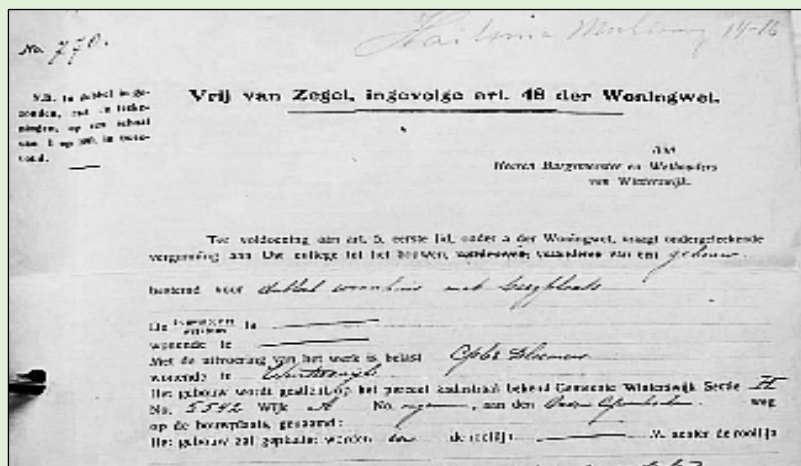 No. 770.
14-16
N.B. In dubbel in te
zenden, met
op een schaal
van 1 op 100, in
Vrij van Zegel, ingevolge art. 48 der Woningwet.
Aan
Heeren Burgemeester en Wethouders
van Winterswijk.
Ter voldoening aan art. 5, eerste lid, onder a der Woningwet, vraagt ondergeteekende
vergunning aan Uw college tot het bouwen, vernieuwen, veranderen van een gebouw
bestemd voor dubbel woonhuis met bergplaats
De is
wonende te
Met de uitvoering van het werk is belast
wonende te Winterswijk
Het gebouw wordt gesticht op het perceel kadastraal bekend Gemeente Winterswijk Sectie H
No. 5542 Wijk A No. , aan den weg
op de bouwplaats, genaamd:
Het gebouw zal geplaatst worden de rooilijn M. achter de rooilijn